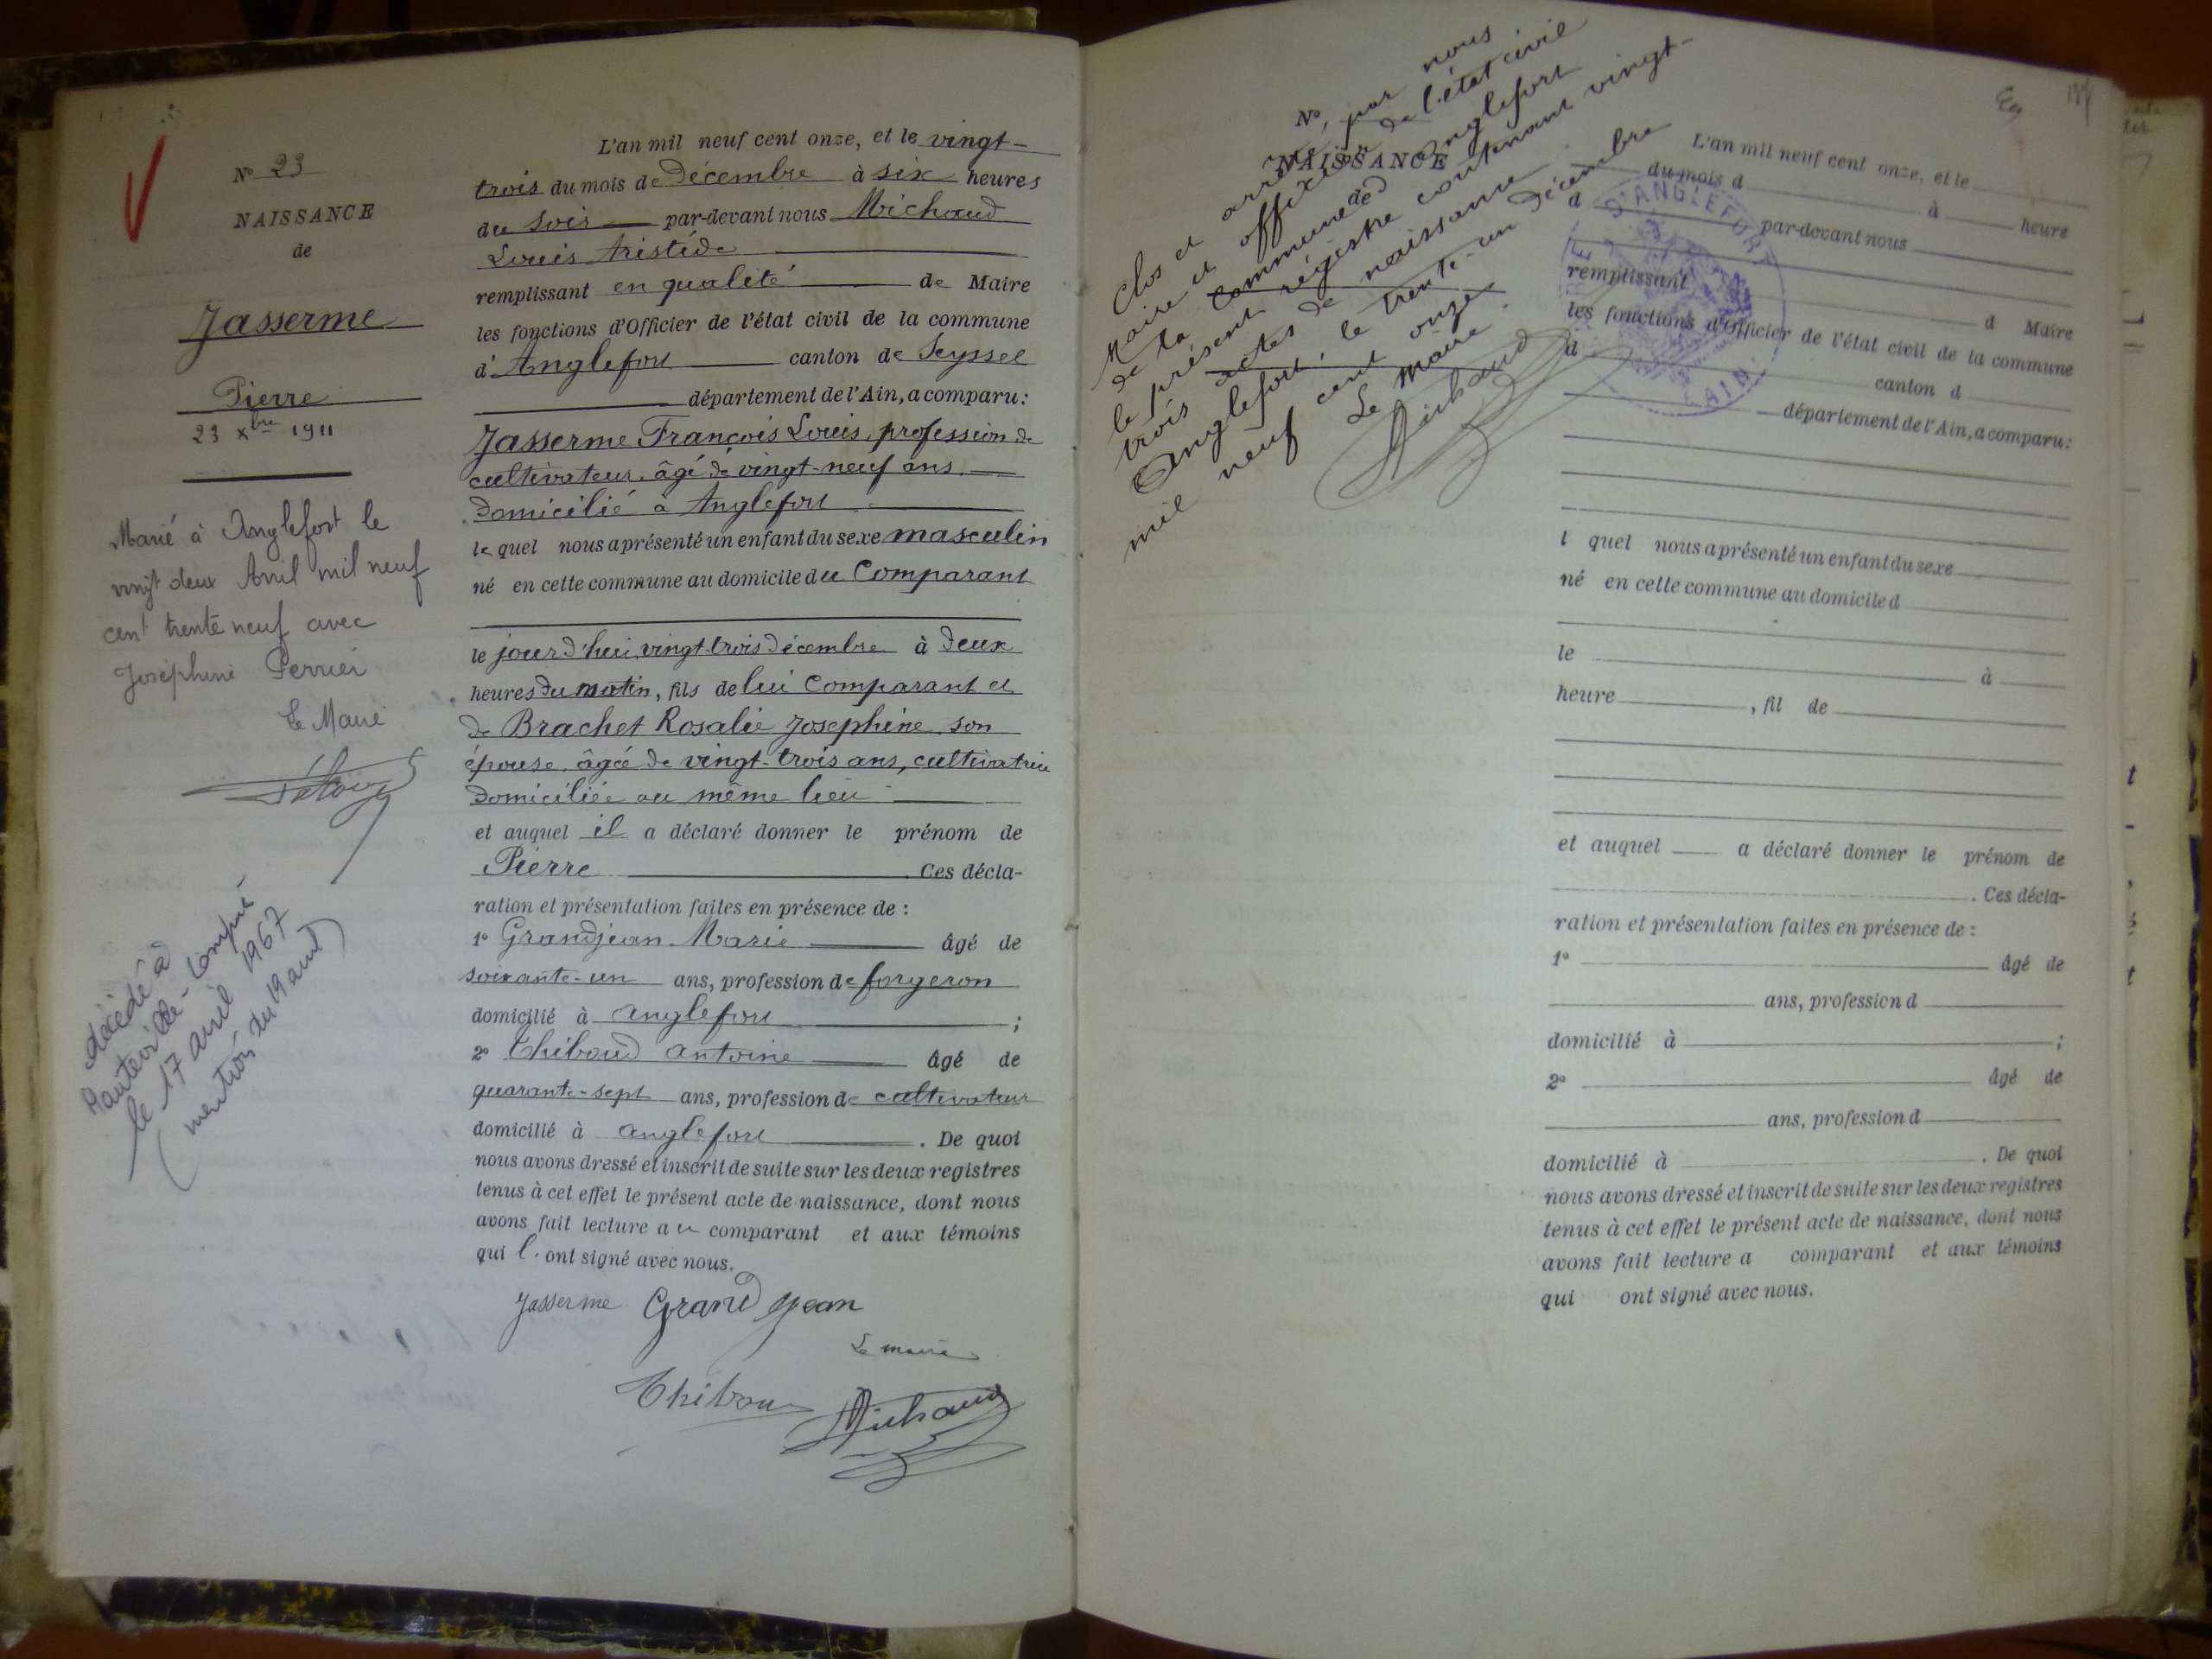 N° 23
NAISSANCE
de
Jasserme
Pierre
23 xbre 1911
Marié à Anglefort le
vingt deux Avril mil neuf
cent trente neuf avec
Joséphine Perrier
Le Maire
décédé à
Hauteville-Lompné
le 17 avril 1967
(mention du 19 avril)
L'an mil neuf cent onze, et le vingt-
trois du mois de décembre à six heures
du soir par-devant nous Michaud
Louis Aristide
remplissant en qualité de Maire
les fonctions d'Officier de l'état civil de la commune
d'Anglefort canton de Seyssel
département de l'Ain, a comparu:
Jasserme François Louis, profession de
cultivateur, âgé de vingt-neuf ans
domicilié à Anglefort
lequel nous a présenté un enfant du sexe masculin
né en cette commune au domicile du Comparant
le jourd'hui, vingt-trois décembre à deux
heures du matin, fils de lui Comparant et
de Brachet Rosalie Josephine, son
épouse, âgée de vingt-trois ans, cultivatrice
domiciliée au même lieu
et auquel il a déclaré donner le prénom de
Pierre Ces décla-
ration et présentation faites en présence de :
1° Grandjean Marie âgé de
soixante-un ans, profession de forgeron
domicilié à Anglefort ;
2° Thiboud Antoine âgé de
quarante-sept ans, profession de cultivateur
domicilié à Anglefort . De quoi
nous avons dressé et inscrit de suite sur les deux registres
tenus à cet effet le présent acte de naissance, dont nous
avons fait lecture au comparant et aux témoins
qui l'ont signé avec nous.
Jasserme Grandjean
Le maire
Thiboud Michaud
Clos et arrêté, par nous
Maire et officier de l'état civil
de la Commune d'Anglefort
le présent régistre contenant vingt-
trois actes de naissance
Anglefort, le trente-un décembre
mil neuf cent onze
Le Maire
Michaud
N°
NAISSANCE
de
D'ANGLEFORT
AIN
L'an mil neuf cent onze, et le
du mois d à heure
d par-devant nous
remplissant d Maire
les fonctions d'Officier de l'état civil de la commune
d canton d
département de l'Ain, a comparu:
l quel nous a présenté un enfant du sexe
né en cette commune au domicile d
le à
heure , fil de
et auquel a déclaré donner le prénom de
. Ces décla-
ration et présentation faites en présence de :
1° âgé de
ans, profession d
domicilié à ;
2° âgé de
ans, profession d
domicilié à . De quoi
nous avons dressé et inscrit de suite sur les deux registres
tenus à cet effet le présent acte de naissance, dont nous
avons fait lecture a comparant et aux témoins
qui ont signé avec nous.